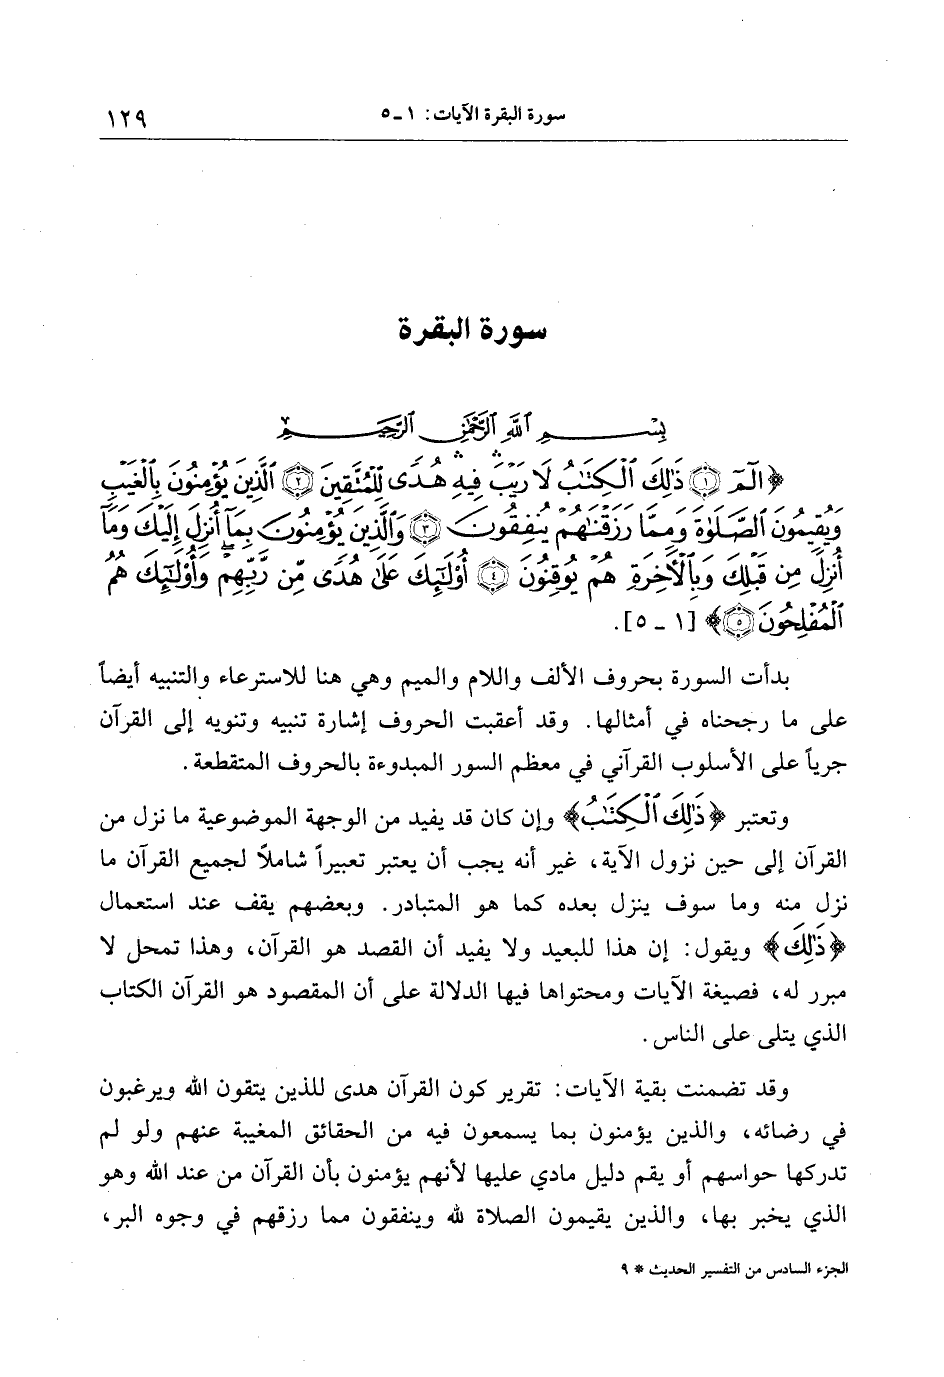 سورة البقرة الآيات: ١ ـ ٥
١٢٩
سورة البقرة
بِسْمِ ٱللَّهِ ٱلرَّحْمَٰنِ ٱلرَّحِيمِ
﴿الٓمٓ ۝١ ذَٰلِكَ ٱلْكِتَٰبُ لَا رَيْبَ ۛ فِيهِ ۛ هُدًى لِّلْمُتَّقِينَ ۝٢ ٱلَّذِينَ يُؤْمِنُونَ بِٱلْغَيْبِ
وَيُقِيمُونَ ٱلصَّلَوٰةَ وَمِمَّا رَزَقْنَٰهُمْ يُنفِقُونَ ۝٣ وَٱلَّذِينَ يُؤْمِنُونَ بِمَآ أُنزِلَ إِلَيْكَ وَمَآ
أُنزِلَ مِن قَبْلِكَ وَبِٱلْأَخِرَةِ هُمْ يُوقِنُونَ ۝٤ أُوْلَٰٓئِكَ عَلَىٰ هُدًى مِّن رَّبِّهِمْ ۖ وَأُوْلَٰٓئِكَ هُمُ
ٱلْمُفْلِحُونَ ۝٥﴾ [١ ـ ٥].
بدأت السورة بحروف الألف واللام والميم وهي هنا للاسترعاء والتنبيه أيضاً
على ما رجحناه في أمثالها. وقد أعقبت الحروف إشارة تنبيه وتنويه إلى القرآن
جرياً على الأسلوب القرآني في معظم السور المبدوءة بالحروف المتقطعة.
وتعتبر ﴿ذَٰلِكَ ٱلْكِتَٰبُ﴾ وإن كان قد يفيد من الوجهة الموضوعية ما نزل من
القرآن إلى حين نزول الآية، غير أنه يجب أن يعتبر تعبيراً شاملاً لجميع القرآن ما
نزل منه وما سوف ينزل بعده كما هو المتبادر. وبعضهم يقف عند استعمال
﴿ذَٰلِكَ﴾ ويقول: إن هذا للبعيد ولا يفيد أن القصد هو القرآن، وهذا تمحل لا
مبرر له، فصيغة الآيات ومحتواها فيها الدلالة على أن المقصود هو القرآن الكتاب
الذي يتلى على الناس.
وقد تضمنت بقية الآيات: تقرير كون القرآن هدى للذين يتقون الله ويرغبون
في رضائه، والذين يؤمنون بما يسمعون فيه من الحقائق المغيبة عنهم ولو لم
تدركها حواسهم أو يقم دليل مادي عليها لأنهم يؤمنون بأن القرآن من عند الله وهو
الذي يخبر بها، والذين يقيمون الصلاة لله وينفقون مما رزقهم في وجوه البر،
الجزء السادس من التفسير الحديث * ٩